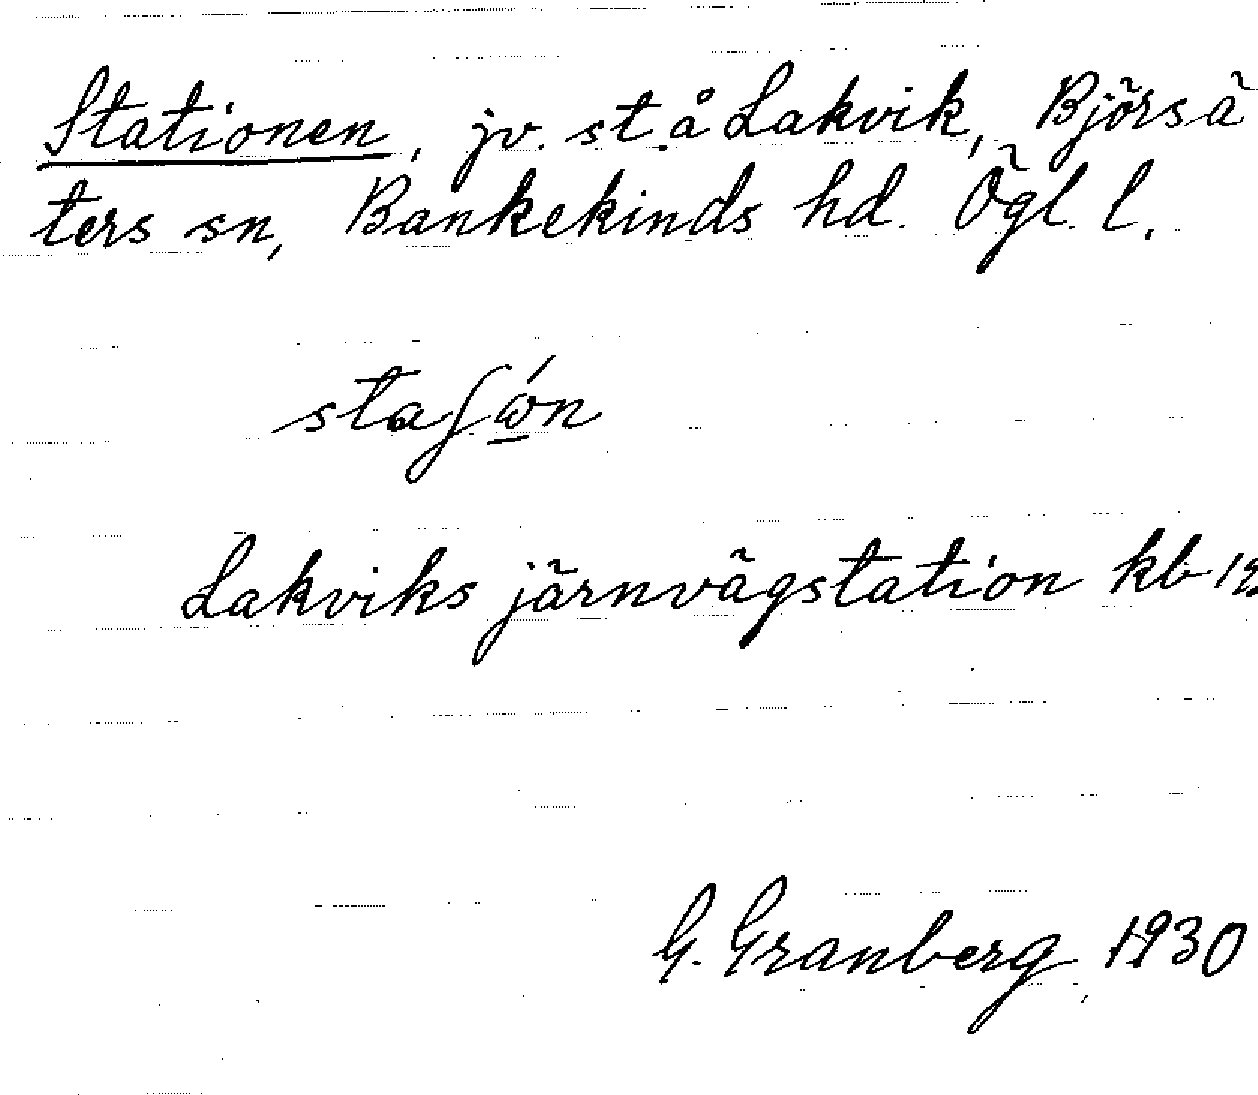 Stationen, jv. st. å Lakvik, Björsä
ters sn, Bankekinds hd. Ögl. l.
Lakviks järnvägstation kb
G. Granberg 1930